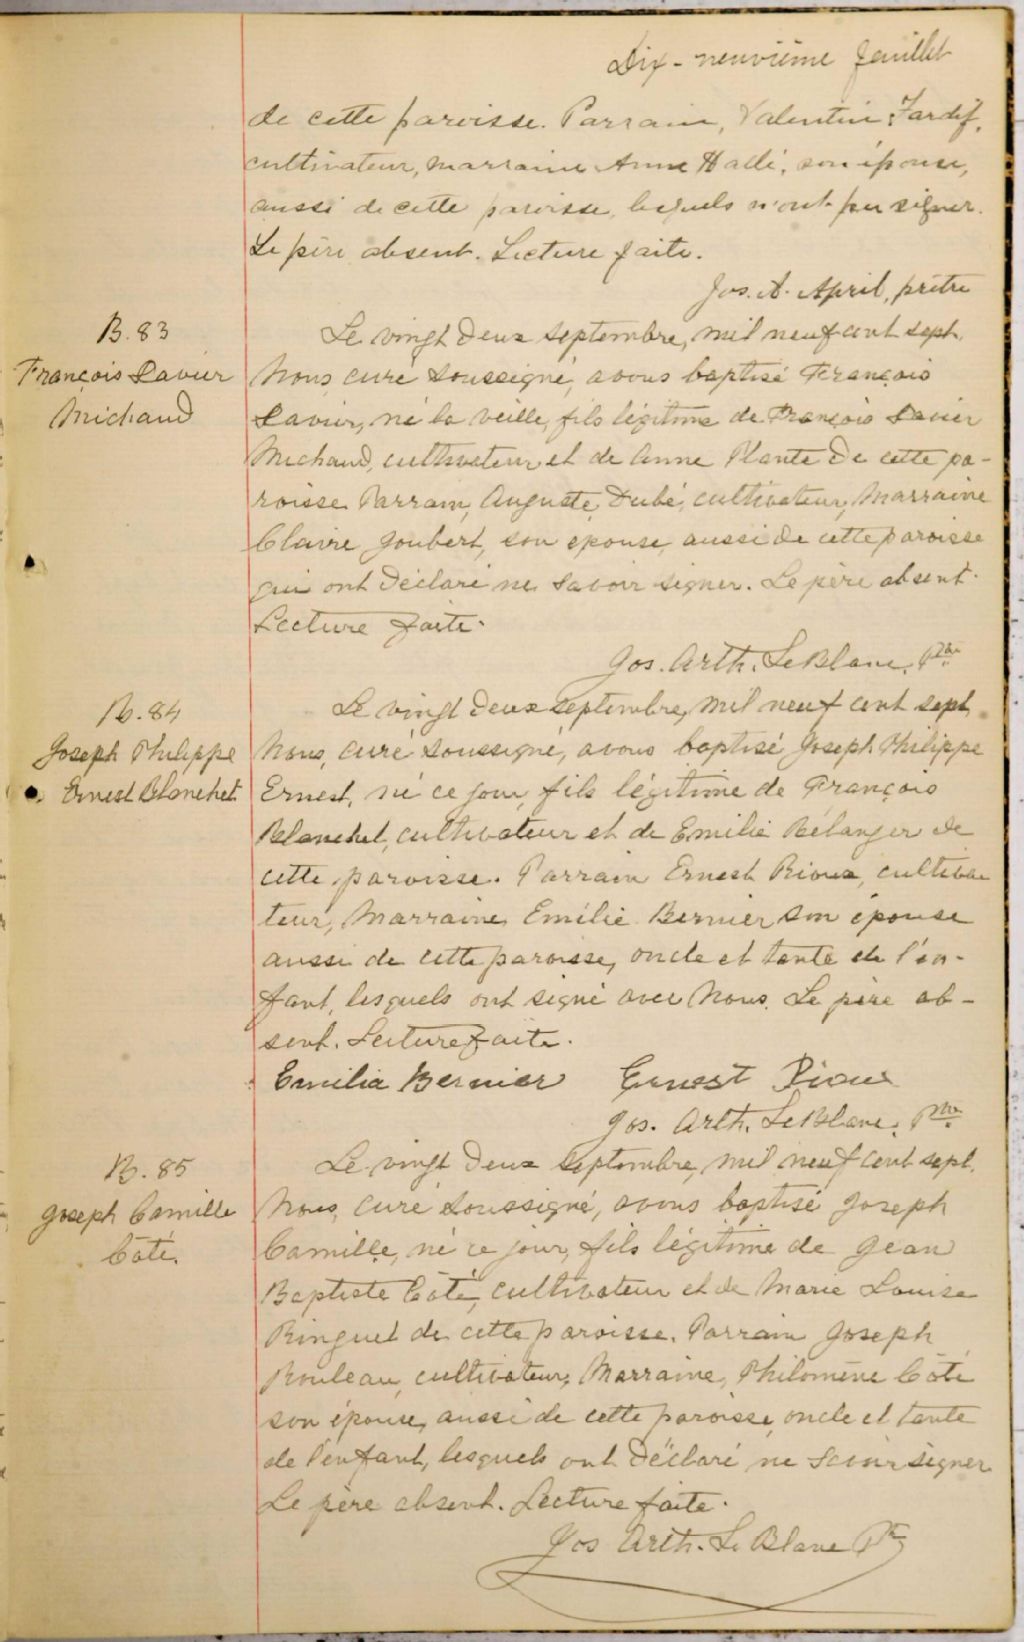 Dix-neuvième feuillet
de cette paroisse. Parrain, Valentin Tardif,
cultivateur, marraine Anne Hallé, son épouse,
aussi de cette paroisse, lesquels n'ont pu signer.
Le père absent. Lecture faite.
Jos. A. April, prêtre
B. 83
François Xavier
Michaud
Le vingt deux septembre, mil neuf cent sept,
Nous, curé soussigné, avons baptisé François
Xavier, né la veille, fils légitime de François Xavier
Michaud, cultivateur et de Anne Plante de cette pa-
roisse. Parrain, Auguste Dubé, cultivateur, Marraine
Claire Joubert, son épouse, aussi de cette paroisse
qui ont déclaré ne savoir signer. Le père absent.
Lecture faite.
Jos. Arth. LeBlanc, Ptre
B. 84
Joseph Philippe
Ernest Blanchet
Le vingt deux septembre, mil neuf cent sept,
Nous, curé soussigné, avons baptisé Joseph Philippe
Ernest, né ce jour, fils légitime de François
Blanchet, cultivateur et de Emilie Bélanger de
cette paroisse. Parrain Ernest Rioux, cultiva
teur, Marraine Emilie Bernier son épouse
aussi de cette paroisse, oncle et tante de l'en-
fant, lesquels ont signé avec Nous. Le père ab-
sent. Lecture faite.
Emilia Bernier Ernest Rioux
Jos. Arth. LeBlanc, Ptre
B. 85
Joseph Camille
Côté.
Le vingt deux septembre, mil neuf cent sept,
Nous, curé soussigné, avons baptisé Joseph
Camille, né ce jour, fils légitime de Jean
Baptiste Côté, cultivateur et de Marie Louise
Ringuet de cette paroisse. Parrain Joseph
Rouleau, cultivateur, Marraine, Philomène Côté
son épouse, aussi de cette paroisse, oncle et tante
de l'enfant, lesquels ont déclaré ne savoir signer
Le père absent. Lecture faite.
Jos Arth. LeBlanc Ptre